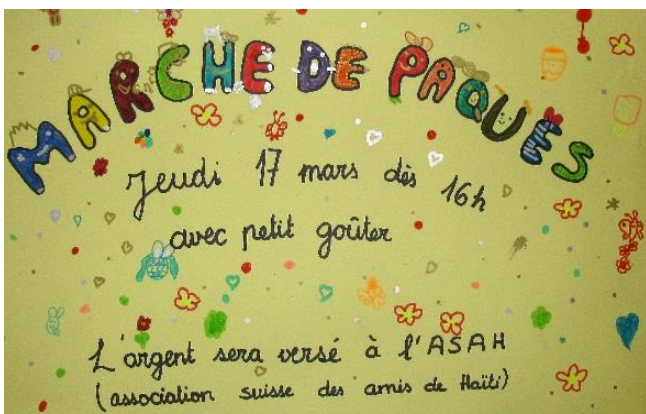 MARCHE DE PAQUES
Jeudi 17 mars dès 16h
avec petit goûter
L'argent sera versé à l'ASAH
(association suisse des amis de Haïti)